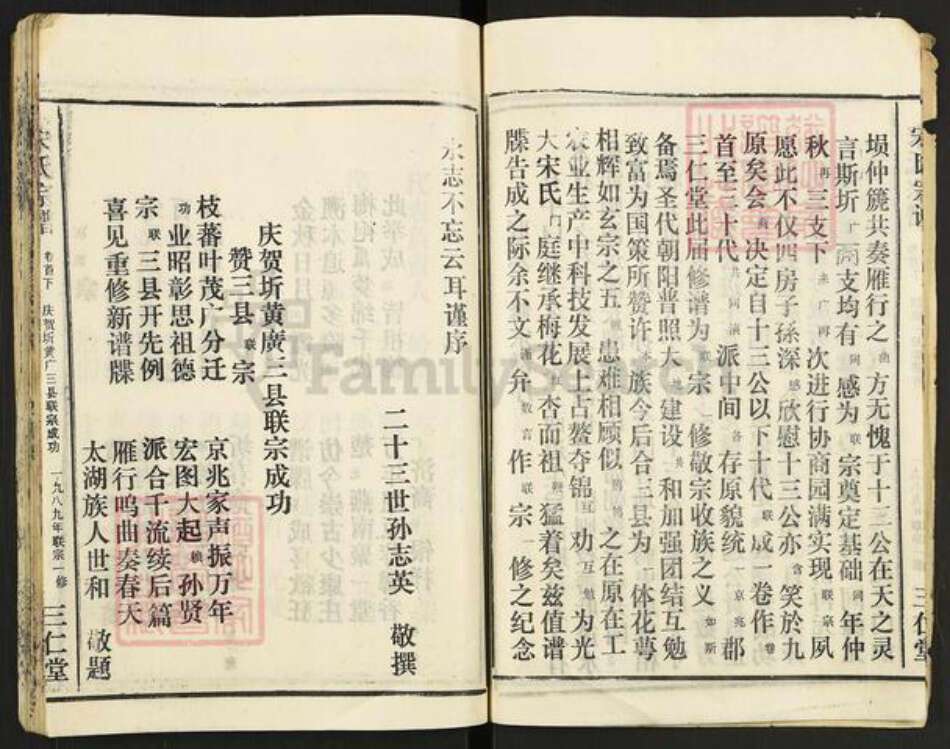 埙仲篪共奏雁行之 方无愧于十三公在天之灵
言斯圻广 两支均有同感为联宗奠定基础同年仲
秋再三支下 来广再次进行协商园满实现联宗夙
愿此不仅四房子孙深感欣慰十三公亦含笑於九
原矣会商决定自十三公以下十代联成一卷作卷
首至三十代共同 派中间各存原貌统一京兆郡
三仁堂此届修谱为联宗一修敬宗收族之义如斯
备焉圣代朝阳普照大地建设共和加强团结互勉
致富为国策所赞许本族今后合三县为一体花萼
相辉如玄宗之五 患难相顾似 之在原在工
农业生产中科技发展上占鳌夺锦互劝互勉为光
大宋氏门庭继承梅花 杏而祖 猛着矣兹值谱
牒告成之际余不文 敬言
弁 作联宗一修之纪念
永志不忘云耳谨序
二十三世孙志英 敬撰
庆贺圻黄廣三县联宗成功
赞三县联宗
枝蕃叶茂广分迁 京兆家声振万年
功业昭彰思祖德 宏图大起赖孙贤
宗联三县开先例 派合千流续后篇
喜见重修新谱牒 雁行鸣曲奏春天
太湖族人世和 敬题
宋氏宗谱 卷首下 庆贺圻黄广三县联宗成功 一九八九年联宗一修 三仁堂
FamilySearch